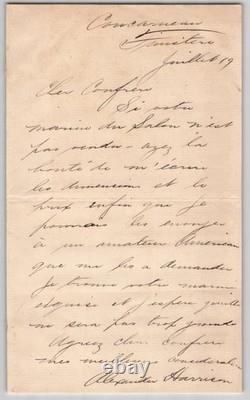 Concarneau
Finistère
Juillet 19
Cher Confrère
Si votre
marine du Salon n'est
pas vendu - ayez la
bonté de m'écrire
les dimensions et le
prix enfin que je
pourrais les envoyer
à un amateur Américain
que me les a demander
Je trouve votre marine
exquise et j'espère qu'elle
ne sera pas trop grande
Agreez cher confrère
mes meilleures considerations
Alexander Harrison